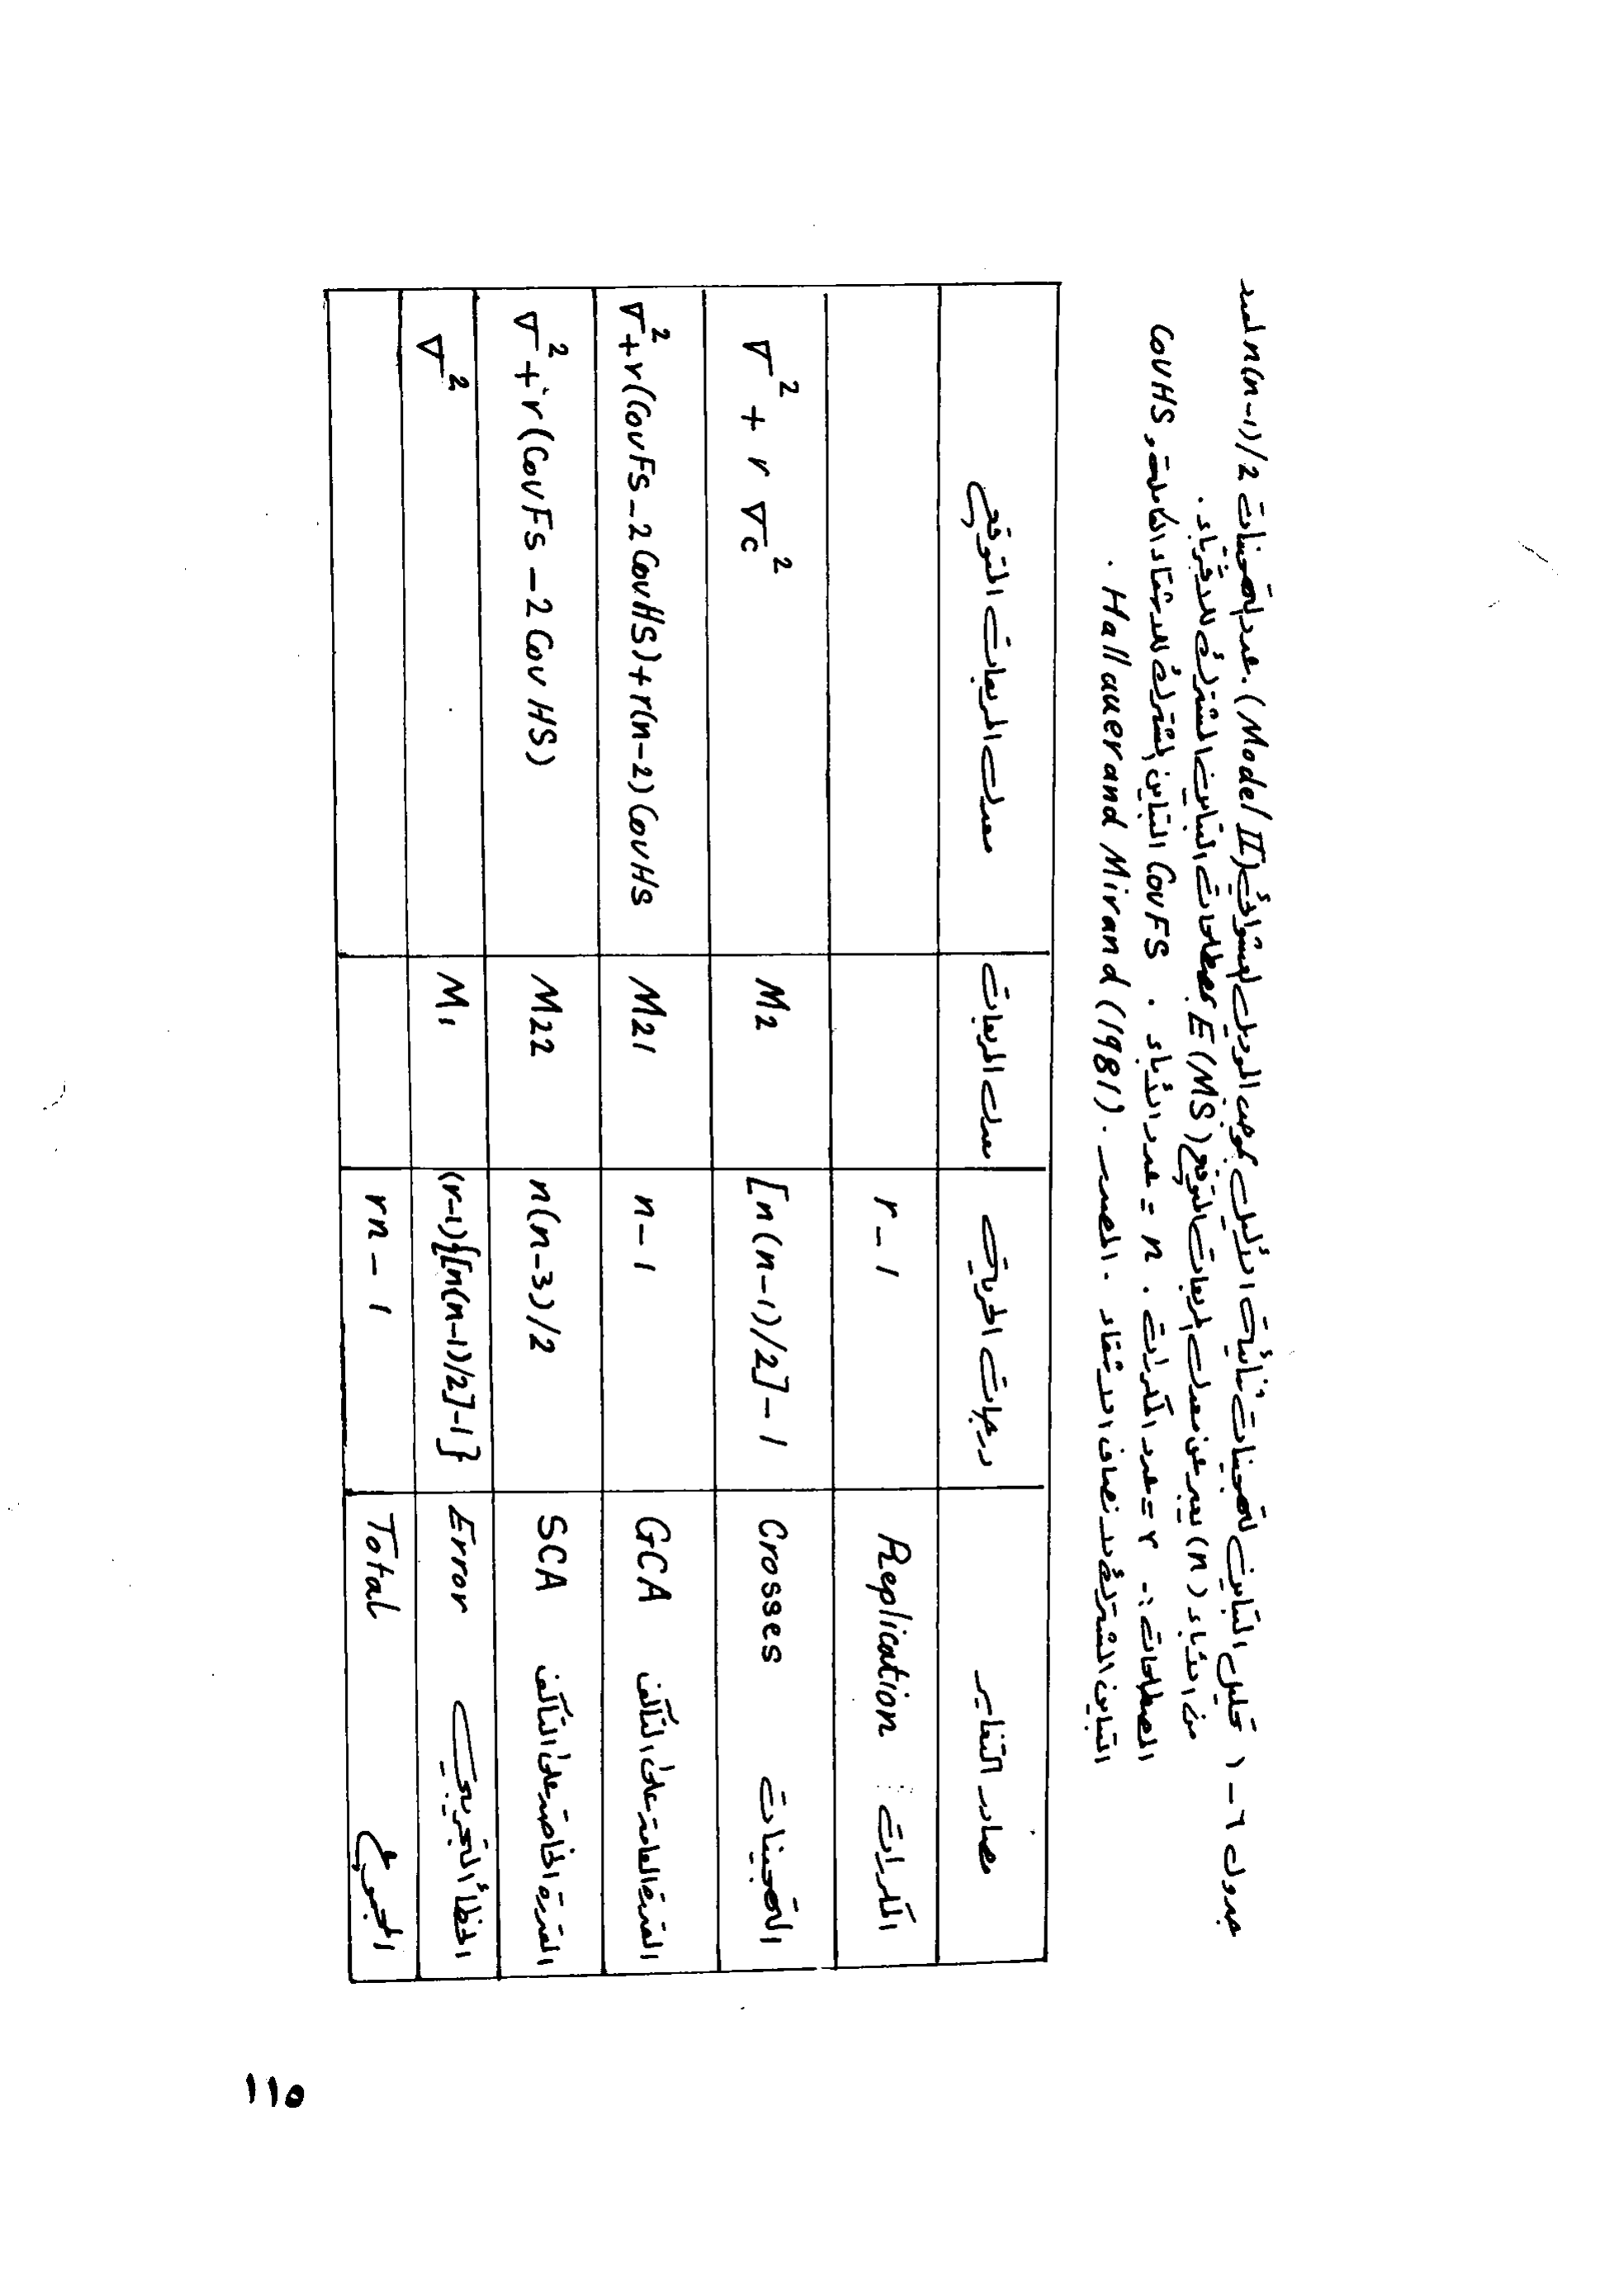 جدول ٦-١ تحليل التباين لتهجينات ثنائية الأليل بفرض الموديل العشوائي (Model II). عدد التهجينات n(n-1)/2 لعدد
من الآباء (n) يعبر عن معدل المربعات المتوقع E(MS) بمصطلحات التباين المشترك للأقرباء.
المصطلحات :- r = عدد المكررات . n = عدد الآباء . CovFS التباين المشترك للأشقاء الكاملة و CovHS
التباين المشترك لأنصاف الأشقاء . المصدر . Hallauer and Mirand (1981) .
مصادر التغاير درجات الحرية معدل المربعات معدل المربعات المتوقع
المكررات Replication r-1
التهجينات Crosses [n(n-1)/2]-1 M2 ∇² + r ∇c²
القدرة العامة على التآلف GCA n-1 M21 ∇²+r(CovFs-2CovHS)+r(n-2)CovHS
القدرة الخاصة على التآلف SCA n(n-3)/2 M22 ∇²+r(CovFs-2CovHS)
الخطأ التجريبي Error (r-1){[n(n-1)/2]-1} M1 ∇²
المجموع Total rn-1
١١٥